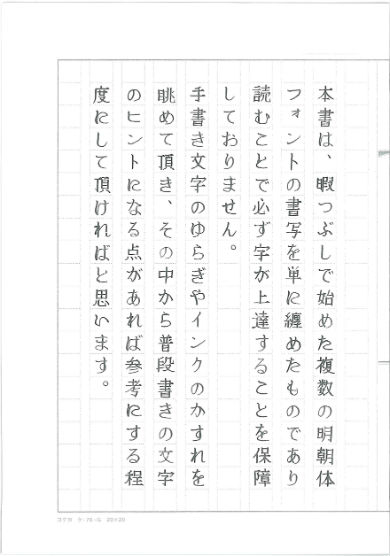 本書は、暇つぶしで始めた複数の明朝体
フォントの書写を単に纏めたものであり
読むことで必ず字が上達することを保障
しておりません。
手書き文字のゆらぎやインクのかすれを
眺めて頂き、その中から普段書きの文字
のヒントになる点があれば参考にする程
度にして頂ければと思います。
コクヨ ケ-75-5 20×20